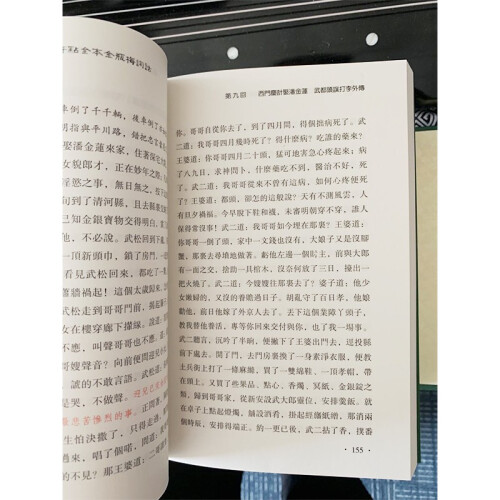 評點全本金瓶梅詞話
車倒了千千輛,後車倒了
胡指與平川路,錯把忠言
娶潘金蓮來家,住著深宅大
女貌郎才,正在妙年之際,
淫慾之事,無日無之。
了,到了清河縣,
己金銀寶物交得明白,
,不必說。武松回到
一頂新頭巾,鎖了房門,一
看見武松回來,都吃了一
蕭牆禍起!這個太歲歸來,
了迎兒小女
女在樓穿廊下攆線。說道
不應,叫聲哥哥也不應。
嫂聲音?向前便問迎兒
,諕的不敢言語。武松
是哭,不做聲。迎兒
悲苦慘烈的事。正問著,
生怕決撒了,只得走過
來,唱了個喏,問道:我
的不見?那王婆道:二哥
第九回 西門慶計娶潘金蓮 武都頭誤打李外傳
你。哥哥自從你去了,到了四月間,得個拙病死了。武
二道:我哥哥四月幾時死了?得什麼病?吃誰的藥來?
王婆道:你哥哥四月二十頭,猛可地害急心疼起來;病
了八九日,求神問卜,什麼藥吃不到,醫治不好,死
了。武二道:我的哥哥從來不曾有這病,如何心疼便死
了?王婆道:都頭,卻怎的這般說?天有不測風雲,人
有旦夕禍福。今早脫下鞋和襪,未審明朝穿不穿,誰人
保得常沒事!武二道:我哥哥如今埋在那裏?王婆道:
你哥哥一倒了頭,家中一文錢也沒有,大娘子又是沒腳
蟹,那裏去尋墳地做著。虧他左邊一個財主,前與大郎
有一面之交,捨助一具棺木,沒奈何放了三日,擡出一
把火燒了。武二道:今嫂嫂往那裏去了?婆子道:他少
女嫩婦的,又沒的養贍過日子。胡亂守了百日孝,他娘
勸他,前日他嫁了外京人去了。丟下這個業障丫頭子,
教我替他養活,專等你回來交付與你,也了我一場事。
武二聽言,沉吟了半晌,便撇下王婆出門去,逕投縣前
下處去。開了門,去門房裏換了一身素淨衣服,便教
土兵街上打了一條麻絛,買了一雙綿鞋,一頂孝帽,帶
在頭上。又買了些果品、點心、香燭、冥紙、金銀錠之
類。歸到哥哥家,從新安設武大郎靈位,安排羹飯,就
在桌子上點起燈燭,鋪設酒肴,掛起經旛紙繒,那消兩
個時辰,安排得端正。約一更已後,武二拈了香,撲翻
155